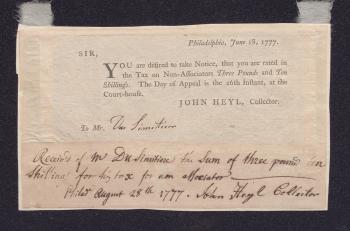 Philadelphia, June 18, 1777.
SIR,
YOU are desired to take Notice, that you are rated in
the Tax on Non-Associators Three Pounds and Ten
Shillings. The Day of Appeal is the 26th Instant, at
the Court-house.
JOHN HEYL, Collector.
To Mr. Du Simitiere
Received of Mr Du Simitiere the Sum of three pound ten
Shilling for his tax for non associator
Philad August 28th 1777 - John Heyl Collector